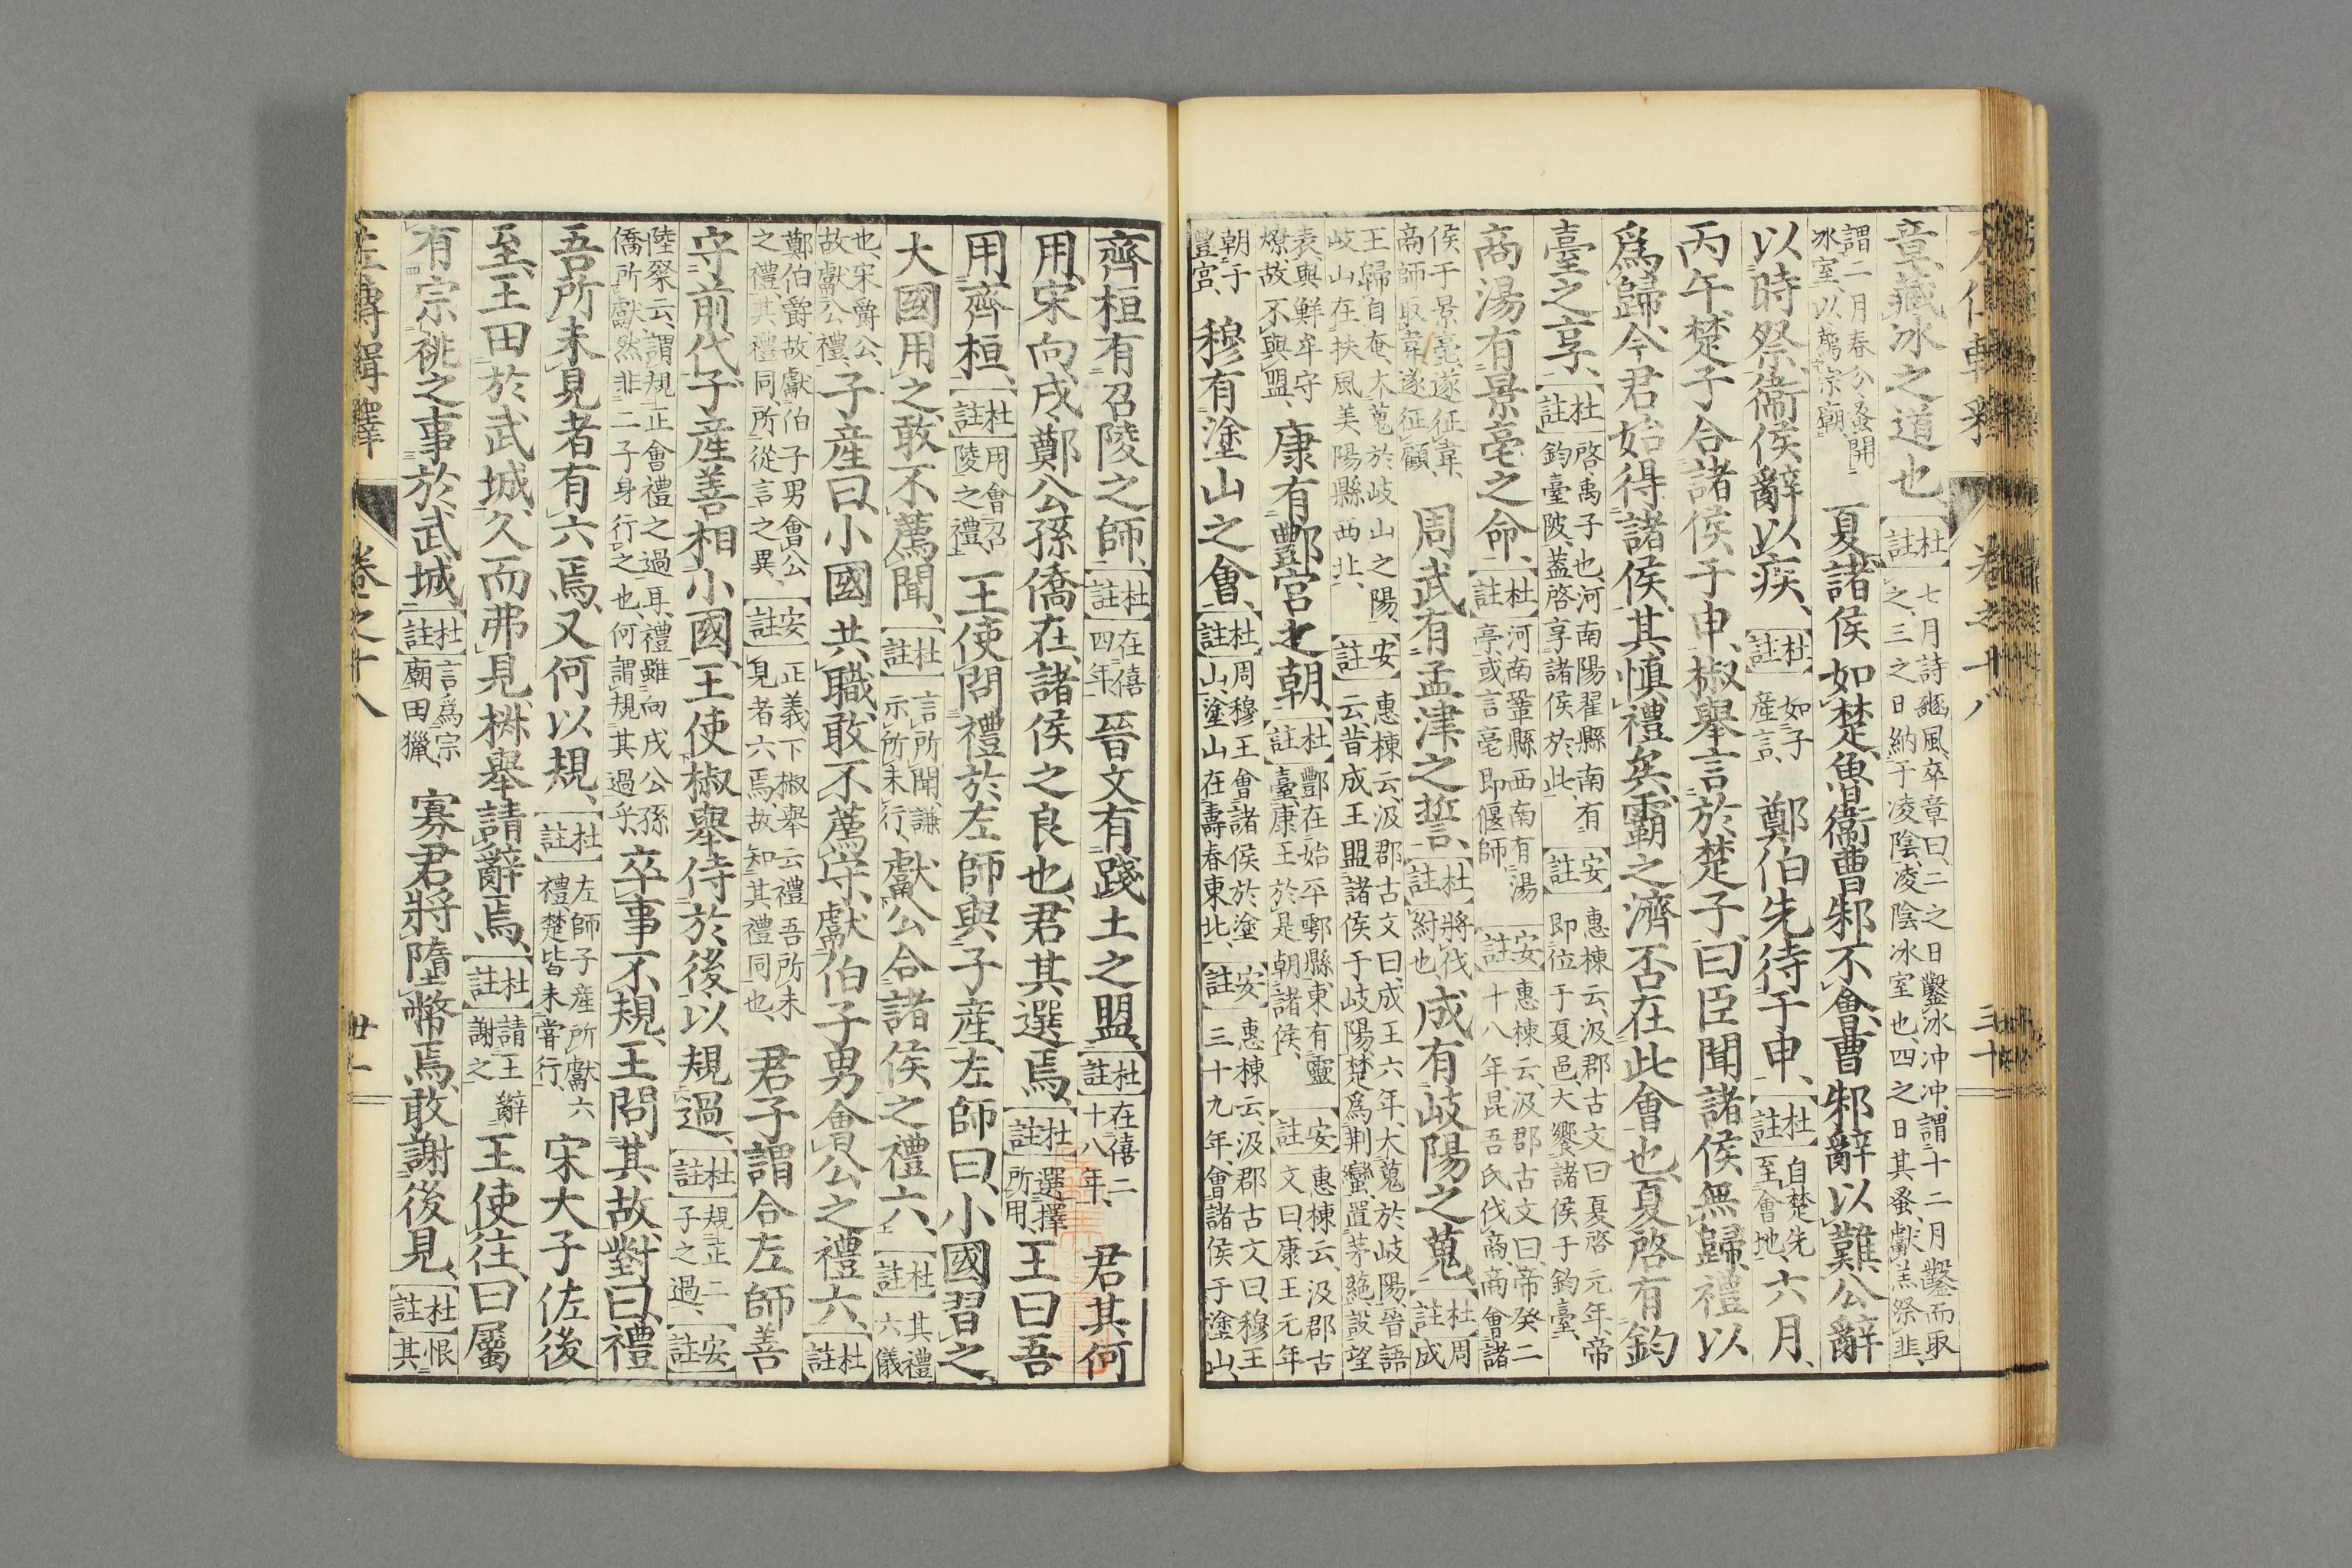 章藏冰之道也、【杜註】七月詩豳風、卒章曰、二之日鑿冰冲冲、謂十二月鑿而取之、三之日納于凌陰、凌陰冰室也、四之日其蚤、獻羔祭韭、
謂二月春分、蚤開冰室、以薦宗廟、夏諸侯如楚、魯衞曹邾不會、曹邾辭以難、公辭
以時祭、衞侯辭以疾、【杜註】如子產言、鄭伯先待于申、【杜註】自楚先至會地、六月、
丙午、楚子合諸侯于申、椒舉言於楚子曰、臣聞諸侯無歸、禮以
爲歸、今君始得諸侯、其愼禮矣、霸之濟否在此會也、夏啓有鈞
臺之享、【杜註】啓、禹子也、河南陽翟縣南有鈞臺陂、蓋啓享諸侯於此、【安註】惠棟云、汲郡古文曰、夏啓元年、帝即位于夏邑、大饗諸侯于鈞臺、
商湯有景亳之命、【杜註】河南鞏縣西南有湯亭、或言亳即偃師、【安註】惠棟云、汲郡古文曰、帝癸二十八年、昆吾氏伐商、商會諸
侯于景亳、遂征韋、商師取韋、遂征顧、周武有孟津之誓、【杜註】將伐紂也、成有岐陽之蒐、【杜註】周成
王歸自奄、大蒐於岐山之陽、岐山在扶風美陽縣西北、【安註】惠棟云、汲郡古文曰、成王六年、大蒐於岐陽、晉語云、昔成王盟諸侯于岐陽、楚爲荆蠻、置茅蕝、設望
表、與鮮牟守燎、故不與盟、康有酆宮之朝、【杜註】酆在始平鄠縣、東有靈臺、康王於是朝諸侯、【安註】惠棟云、汲郡古文曰、康王元年
朝于豐宮、穆有塗山之會、【杜註】周穆王會諸侯於塗山、塗山在壽春東北、【安註】惠棟云、汲郡古文曰、穆王三十九年、會諸侯于塗山、
齊桓有召陵之師、【杜註】在僖四年、晉文有踐土之盟、【杜註】在僖二十八年、君其何
用、宋向戌、鄭公孫僑在、諸侯之良也、君其選焉、【杜註】選擇所用、王曰、吾
用齊桓、【杜註】用會召陵之禮、王使問禮於左師與子產、左師曰、小國習之、
大國用之、敢不薦聞、【杜註】言所聞、謙示所未行、獻公合諸侯之禮六、【杜註】其禮六儀
也、宋爵公、故獻公禮、子產曰、小國共職、敢不薦守、獻伯子男會公之禮六、【杜註】
鄭伯爵、故獻伯子男會公之禮、其禮同、所從言之異、【安註】正義、下椒舉云、禮吾所未見者六焉、故知其禮同也、君子謂合左師善
守前代、子產善相小國、王使椒舉侍於後以規過、【杜註】規正二子之過、【安註】
陸粲云、謂規正會禮之過耳、禮雖向戌公孫僑所獻、然非二子身行之也、何謂規其過乎、卒事不規、王問其故、對曰、禮
吾所未見者有六焉、又何以規、【杜註】左師子產所獻六禮、楚皆未嘗行、宋大子佐後
至、王田於武城、久而弗見、椒舉請辭焉、【杜註】請王辭謝之、王使往曰、屬
有宗祧之事於武城、【杜註】言爲宗廟田獵、寡君將墮幣焉、敢謝後見、【杜註】恨其
左傳輯釋 卷之十八